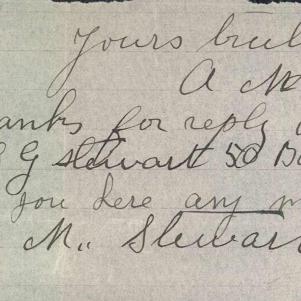 Yours
A M
anks for reply
G Stewart 50
you here any m
M,, Stewart